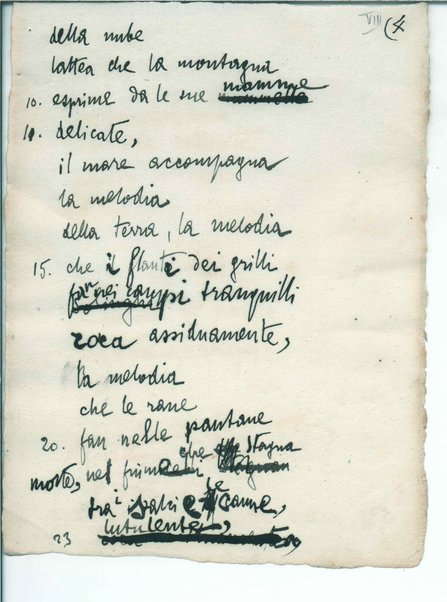 VIII (4
della nube
lattea che la montagna
10. esprime da le sue mamme
delicate,
il mare accompagna
la melodia
della terra, la melodia
15. che i flauti dei grilli
tranquilli
roca assiduamente,
la melodia
che le rane
20. fan nelle pantane
morte, nel fiume che stagna
tra i salci e le canne
lutulente,
23